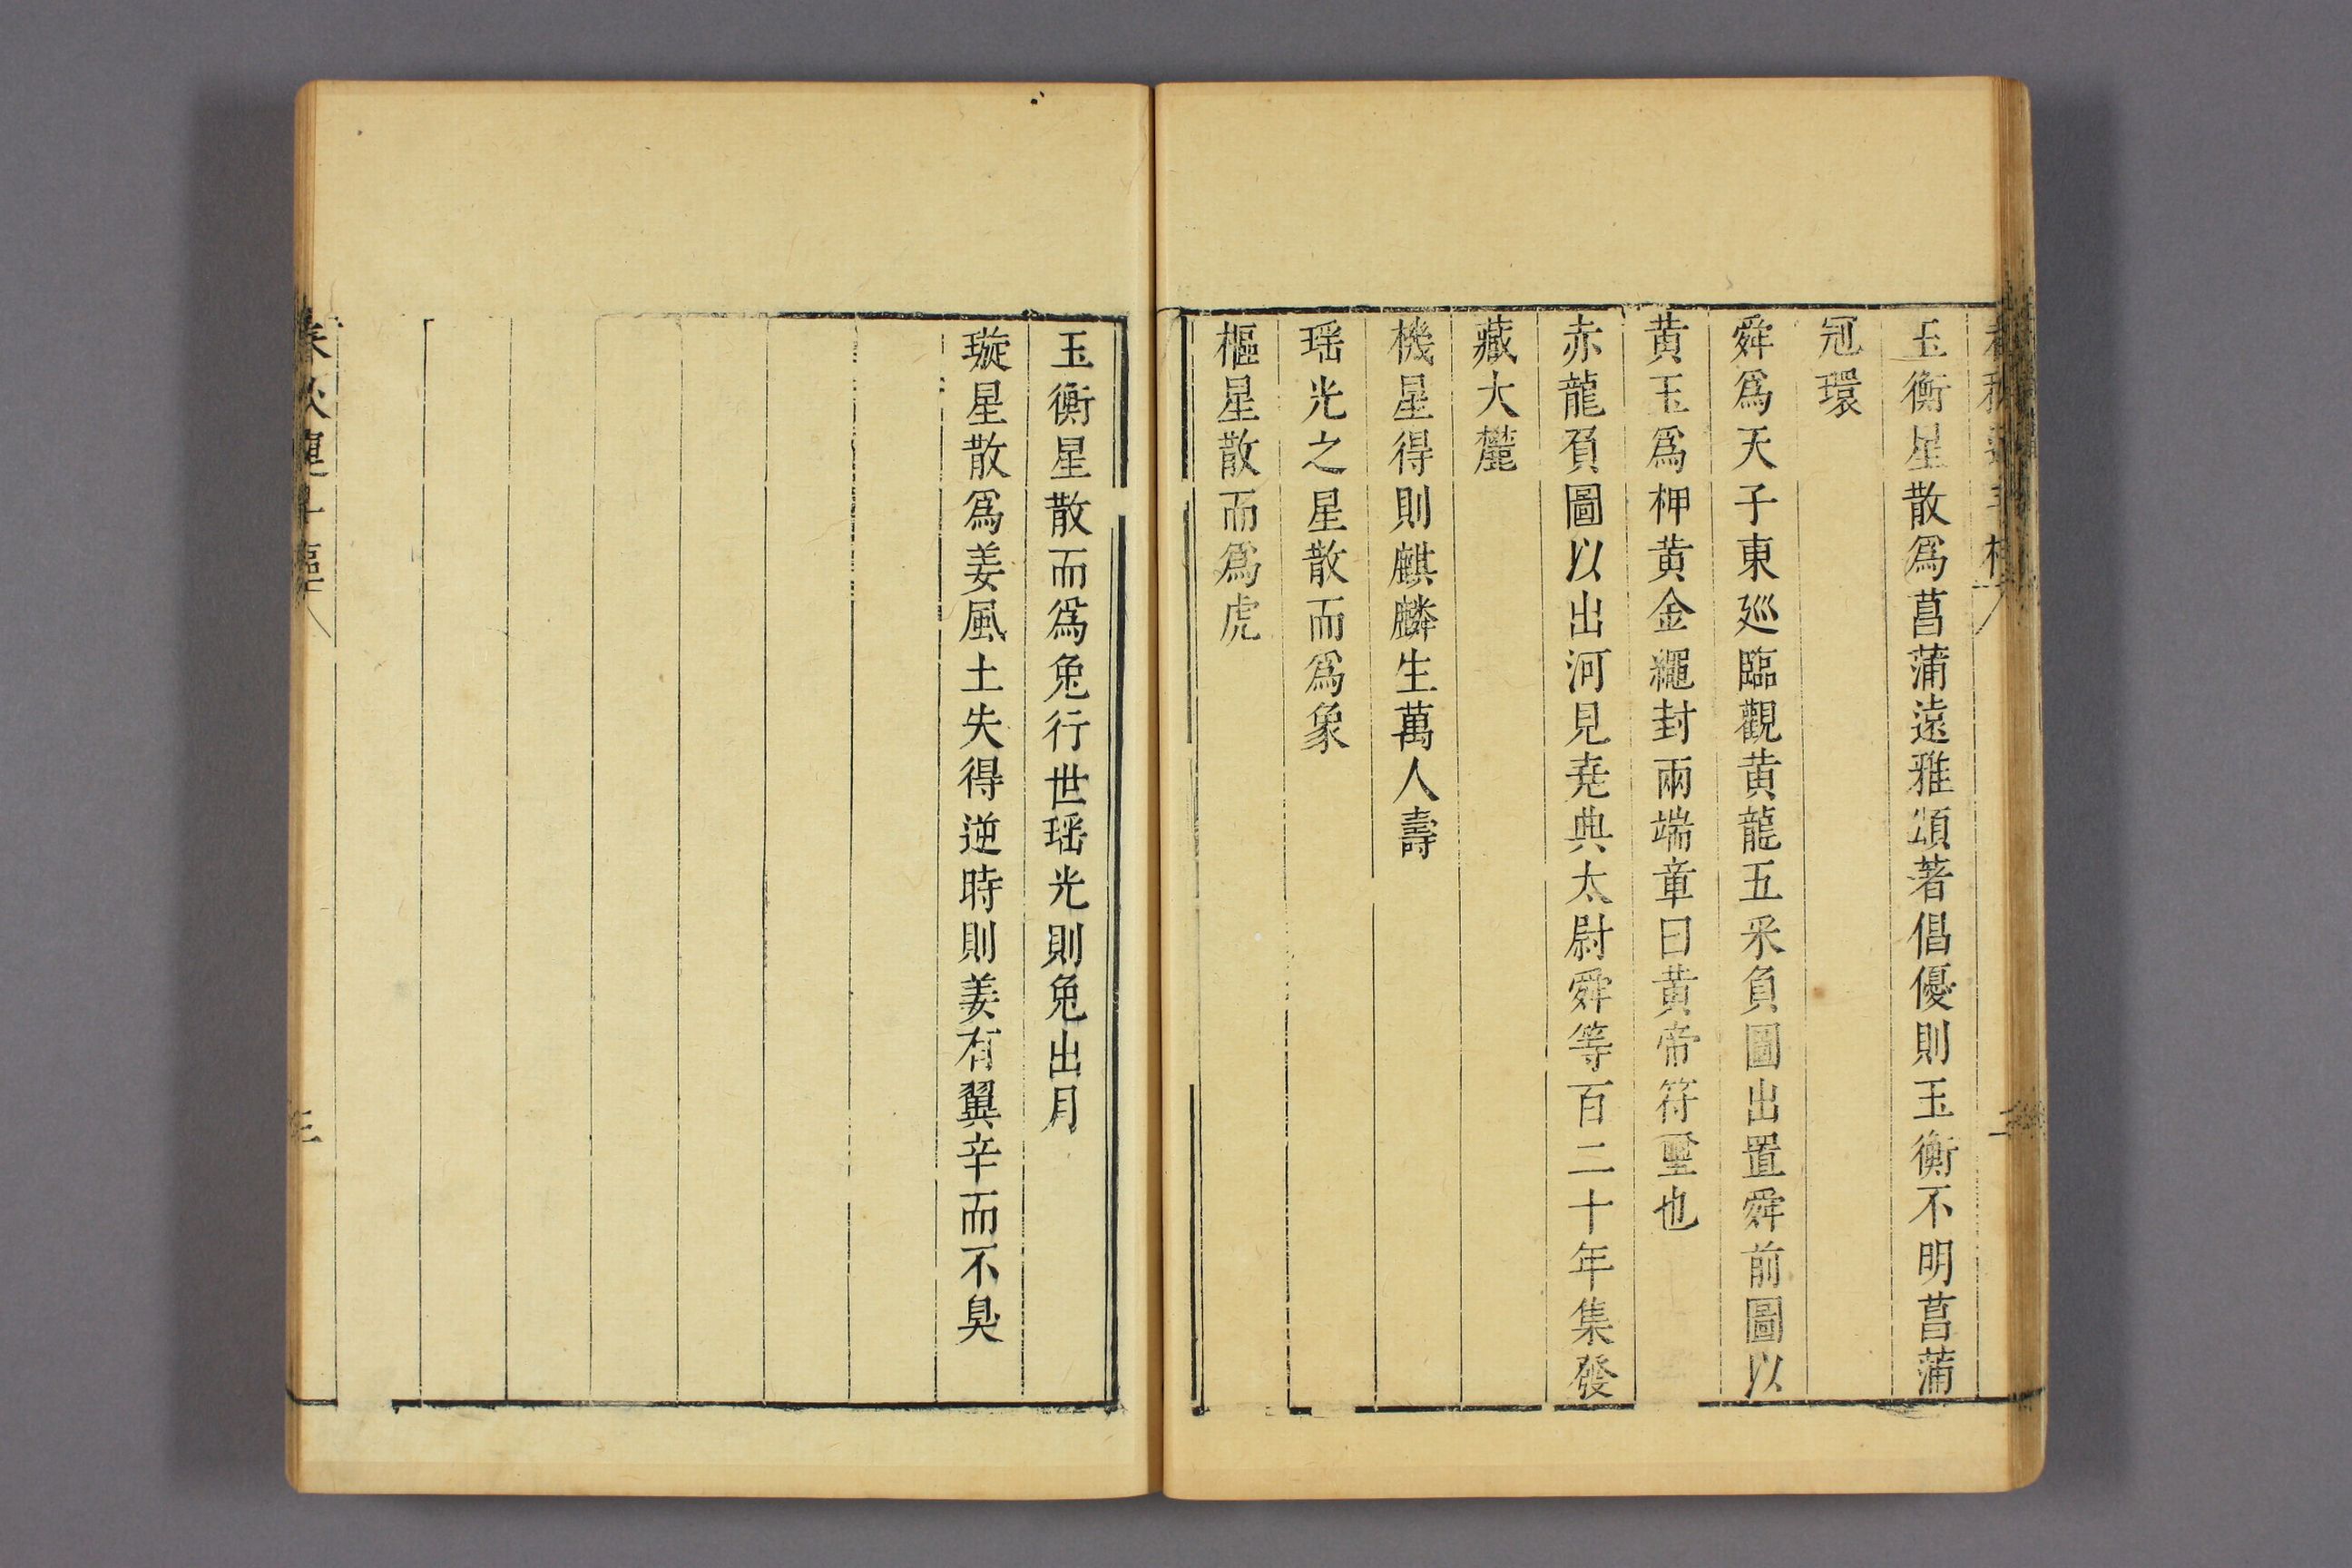 玉衡星散爲菖蒲遠雅頌著倡優則玉衡不明菖蒲
冠環
舜爲天子東廵臨觀黄龍五采負圖出置舜前圖以
黄玉爲柙黄金繩封兩端章曰黄帝符璽也
赤龍負圖以出河見堯典太尉舜等百二十年集發
藏大麓
機星得則麒麟生萬人壽
瑶光之星散而爲象
樞星散而爲虎
玉衡星散而爲兔行世瑶光則兔出月
璇星散爲姜風土失得逆時則姜有翼辛而不臭
春秋運斗樞
三